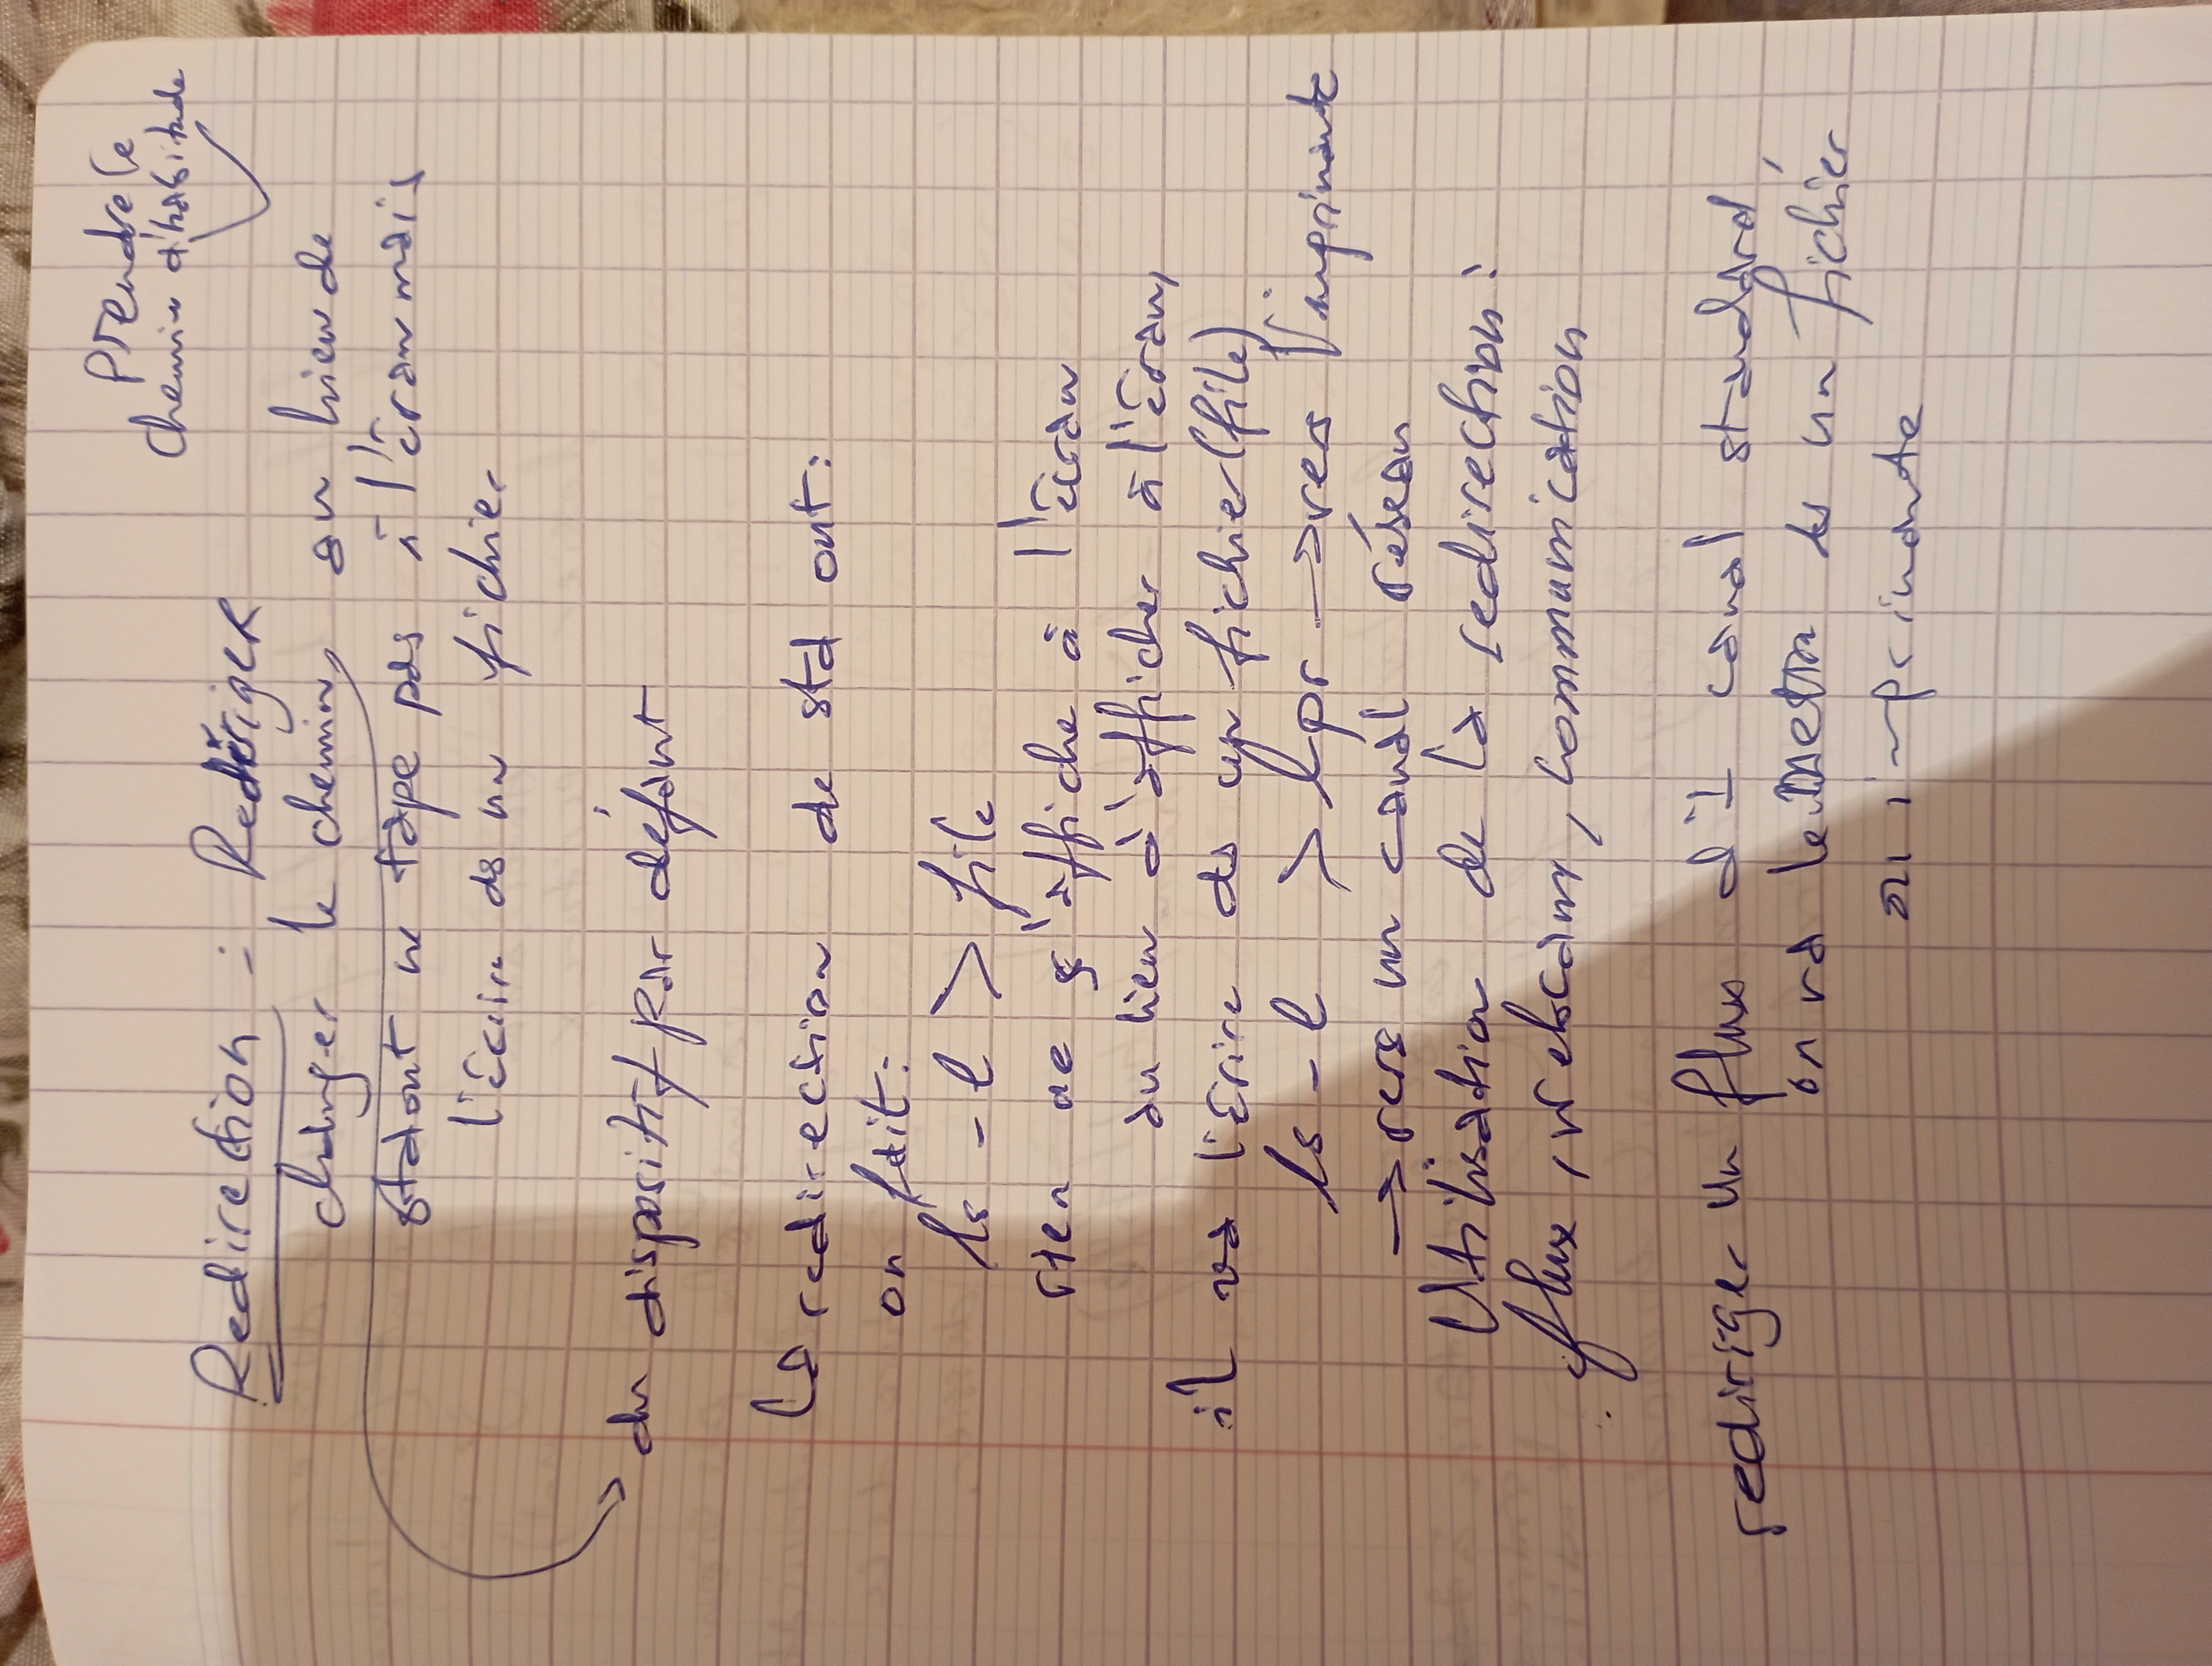 Redirection : Rediriger
prendre le
chemin d'habitude
changer le chemin, au lieu de
stdout ne tape pas à l'écran mais
l'écrire ds un fichier
du dispositif par défaut
La redirection de std out :
on fait :
ls -l > file
rien ne s'affiche à l'écran
au lieu d'afficher à l'écran,
il va l'écrire ds un fichier (file)
ls -l > lpr → vers l'imprimante
→ vers un canal réseau
Utilisation de la redirection :
flux, communication
rediriger un flux d'1 canal standard
on va le mettre ds un fichier
ou imprimante